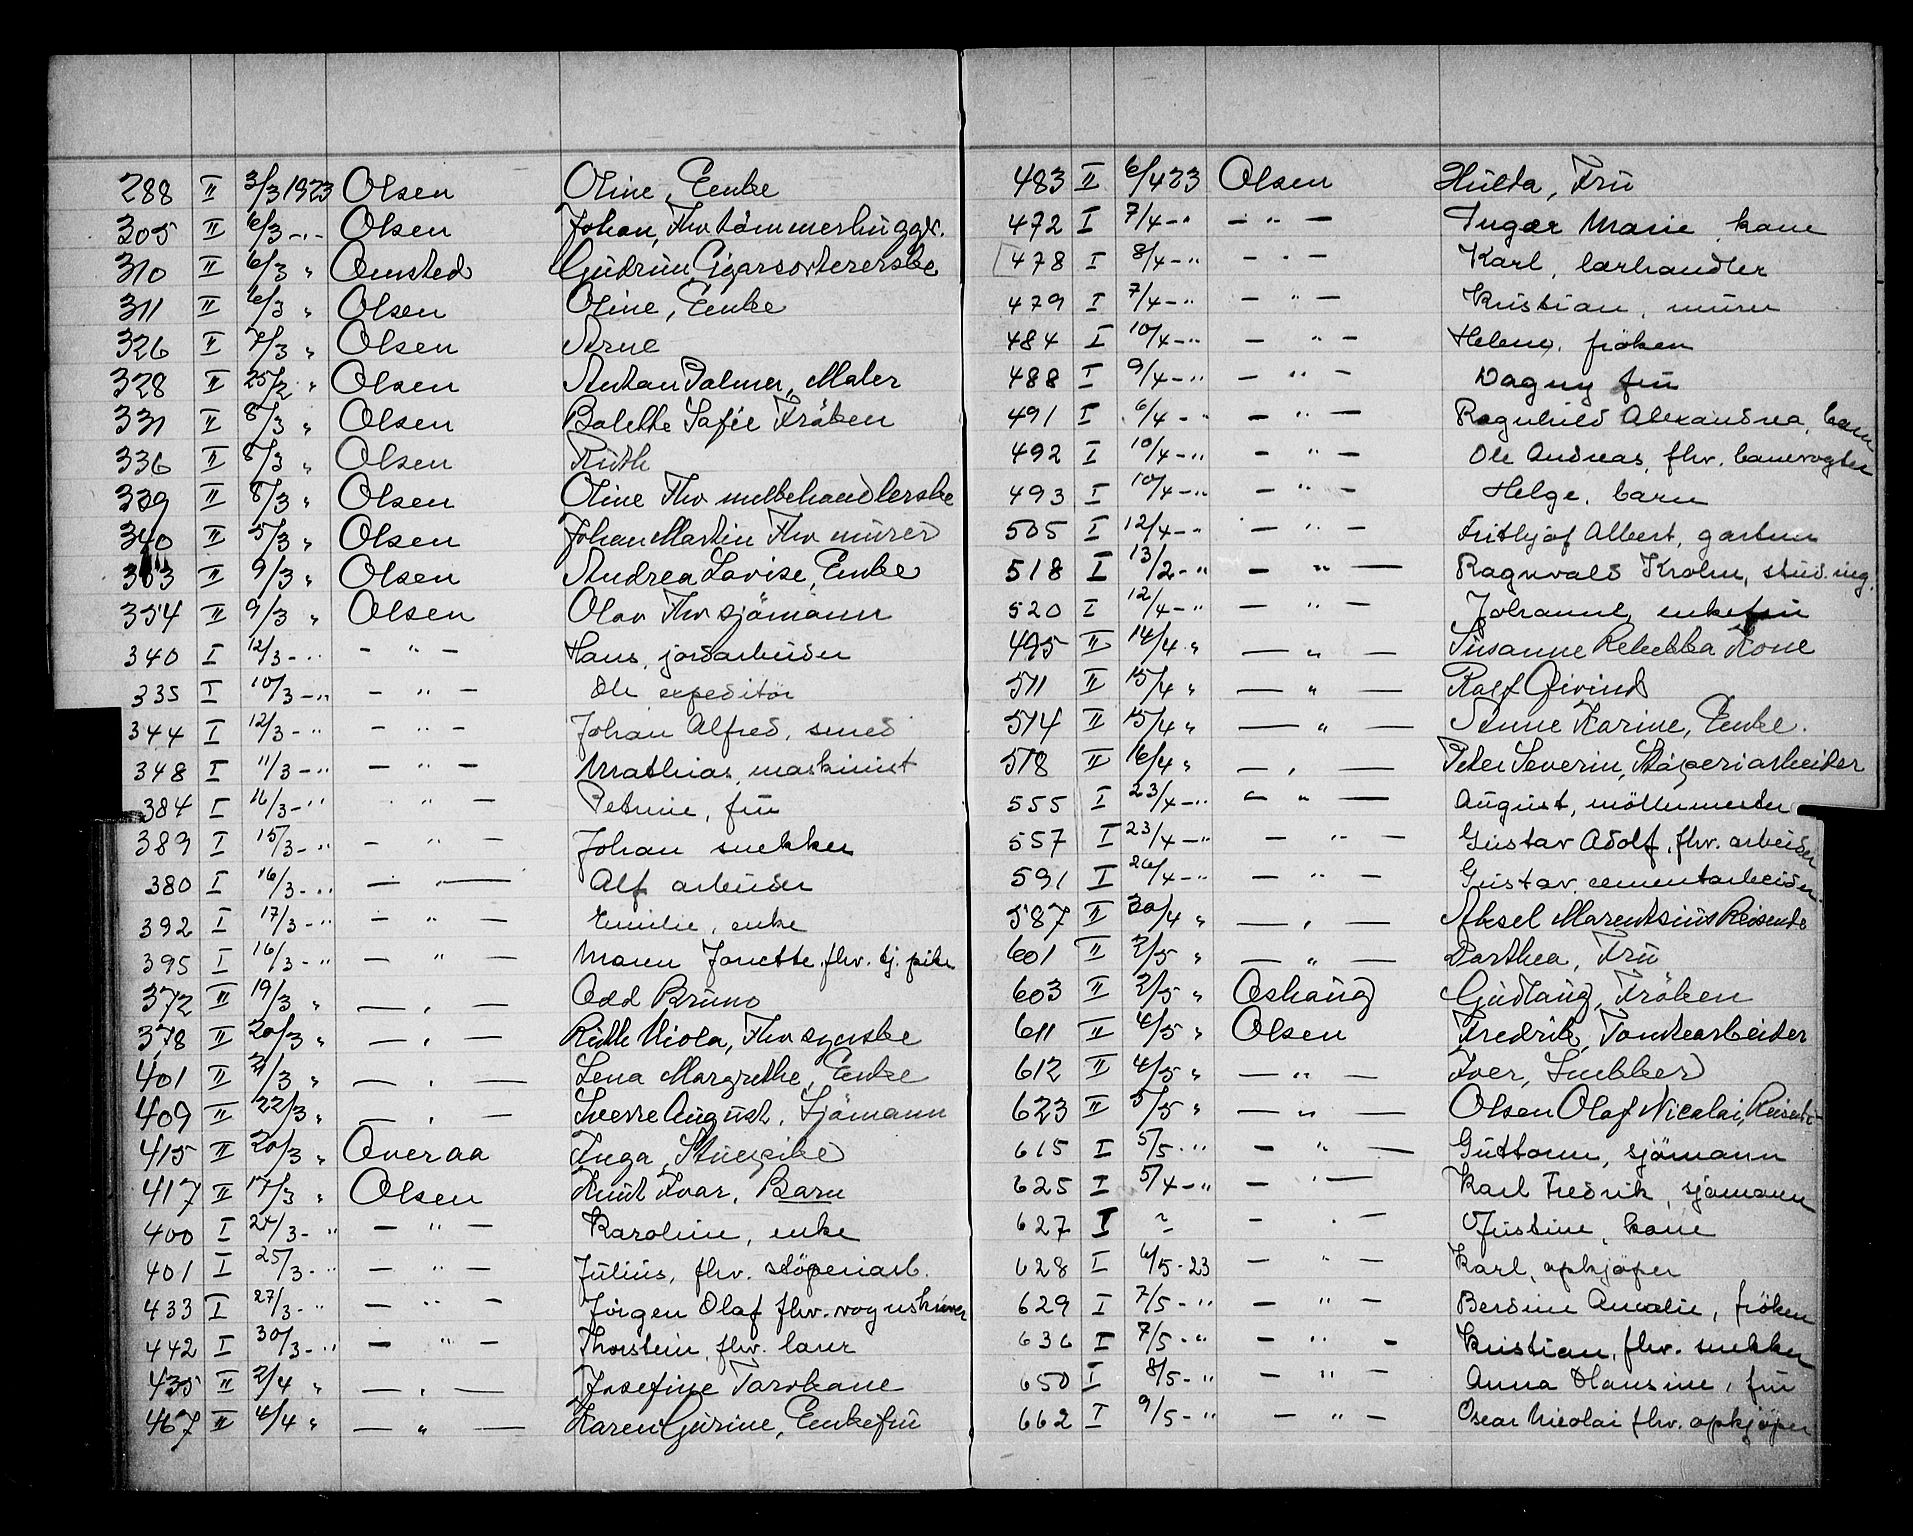 288 II 3/3 1923 Olsen Oline, Enke
305 II 6/3 -"- Olsen Johan, Fhv tömmerhugger.
310 II 6/3 " Omsted Gudrun, Cigarsortererske
311 II 6/3 " Olsen Oline, Enke
326 II 7/3 " Olsen Arne
328 II 25/2 " Olsen Anton Palmer, Maler
331 II 8/3 " Olsen Bolette Sofie Fröken
336 II 8/3 " Olsen Ruth
339 II 8/3 " Olsen Oline Fhv melkehandlerske
340 II 5/3 " Olsen Johan Martin Fhv murer
353 II 9/3 " Olsen Andrea Lovise, Enke
354 II 9/3 " Olsen Olav Fhv sjömann
340 I 12/3 -" - " - Hans, jordarbeider
335 I 10/3 -" - " - Ole expeditör
344 I 12/3 -" - " - Johan Alfred, smed
348 I 11/3 -" - " - Mathias, maskinist
384 I 16/3 -" - " - Petrine, fru
389 I 15/3 -" - " - Johan snekker
380 I 16/3 -" - " - Alf arbeider
392 I 17/3 -" - " - Emilie, enke
395 I 16/3 -" - " - Maren Jonette, fhv. tj. pike
372 II 19/3 " - " - Odd Bruno
378 II 20/3 " - " - Ruth Viola, Fhv syerske
401 II 21/3 " - " - Lena Margrethe, Enke
409 II 22/3 " - " - Sverre August, Sjömann
415 II 20/3 " Overaa Inga, Stuepike
417 II 17/3 " Olsen Knut Ivar, Barn
400 I 24/3 -" - " - Karoline, enke
401 I 25/3 -" - " - Julius, fhv. støperiarb.
433 I 27/3 -" - " - Jörgen Olaf fhv. vognskriver
442 I 30/3 -" - " - Thorstein, fhv. lanz
435 II 2/4 " - " - Josefine Torv kone
467 II 4/4 " - " - Karen Gurine, Enkefru
483 II 6/4 23 Olsen Hulda, Fru
472 I 7/4 -" - " - Inger Marie, kone
478 I 8/4 -" - " - Karl, lærhandler
479 I 7/4 -" - " - Kristian, murer
484 I 10/4 -" - " - Helene, fröken
488 I 9/4 -" - " - Dagny fru
491 I 6/4 -" - " - Ragnhild Alexandrea, barn
492 I 10/4 -" - " - Ole Andreas, fhv. banevogter
493 I 10/4 -" - " - Helge, barn
505 I 12/4 -" - " - Frithjof Albert, gartner
518 I 13/2 -" - " - Ragnvald Krohn, stud. ing.
520 I 12/4 -" - " - Johanne, enkefru
495 II 14/4 " - " - Susanne Rebekka Kone
511 II 15/4 " - " - Rolf Øivind
514 II 15/4 " - " - Anne Karine, Enke.
518 II 16/4 " - " - Peter Severin, Støperiarbeider
555 I 23/4 -" - " - August, möllemester
557 I 23/4 -" - " - Gustav Adolf, fhv. arbeider
591 I 26/4 -" - " - Gustav, cementarbeider
587 II 30/4 " - " - Aksel Marentsius Reisende
601 II 2/5 " - " - Dorthea, Fru
603 II 2/5 " Oshaug Gudlaug, Fröken
611 II 4/5 " Olsen Fredrik, Tomtearbeider
612 II 4/5 " - " - Iver, Snekker
623 II 5/5 " - " - Olsen Olaf Nicolai, Reisende
615 I 5/5 -" - " - Guttorm, sjömann
625 I 5/4 -" - " - Karl Fredrik, sjømann
627 I ? - " - Justine, kone
628 I 6/5 - 23 - " - Karl, opkjøper
629 I 7/5 -" - " - Berdine Amalie, fröken
636 I 7/5 -" - " - Kristian, fhv. snekker
650 I 8/5 -" - " - Anna Hansine, fru
662 I 9/5 -" - " - Oscar Nicolai fhv. opkjøper